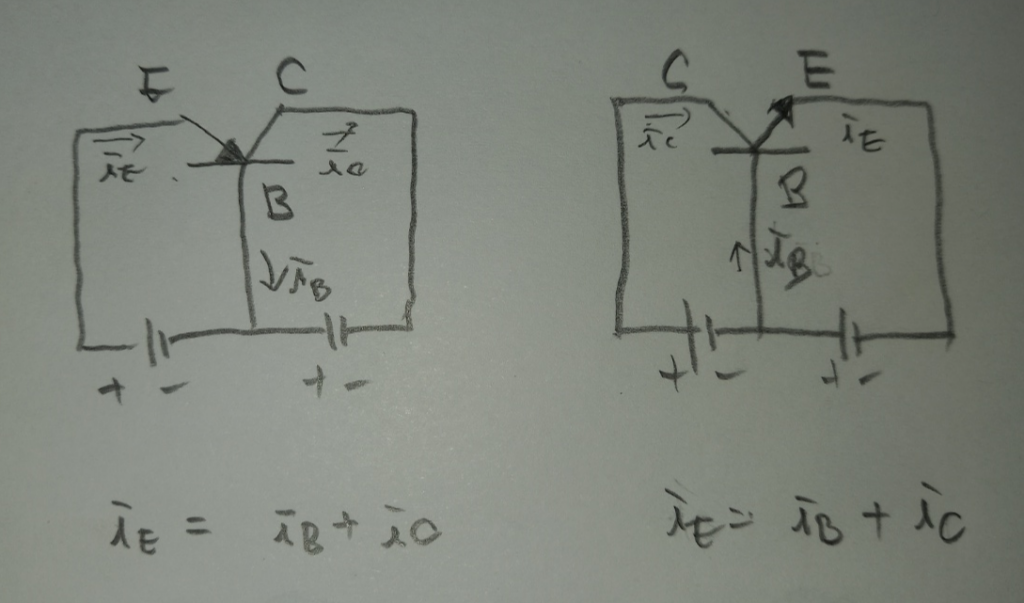 E C
i_E i_C
B
i_B
+ - + -
i_E = i_B + i_C
C E
i_C i_E
B
i_B
+ - + -
i_E = i_B + i_C